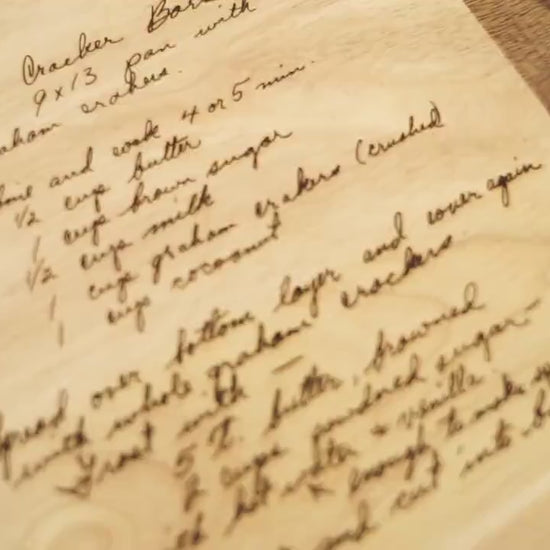 Cracker Bars
9x13 pan with
graham crakers.
and cook 4 or 5 min.
1/2 cup butter
1 cup brown sugar
1/2 cup milk
1 cup graham crakers (crushed)
1 cup cocoanut
Spread over bottom layer and cover again
with whole graham crackers.
Frost with —
5 T. butter, browned
2 cups powdered sugar -
hot water & vanilla.
enough to make
and cut into